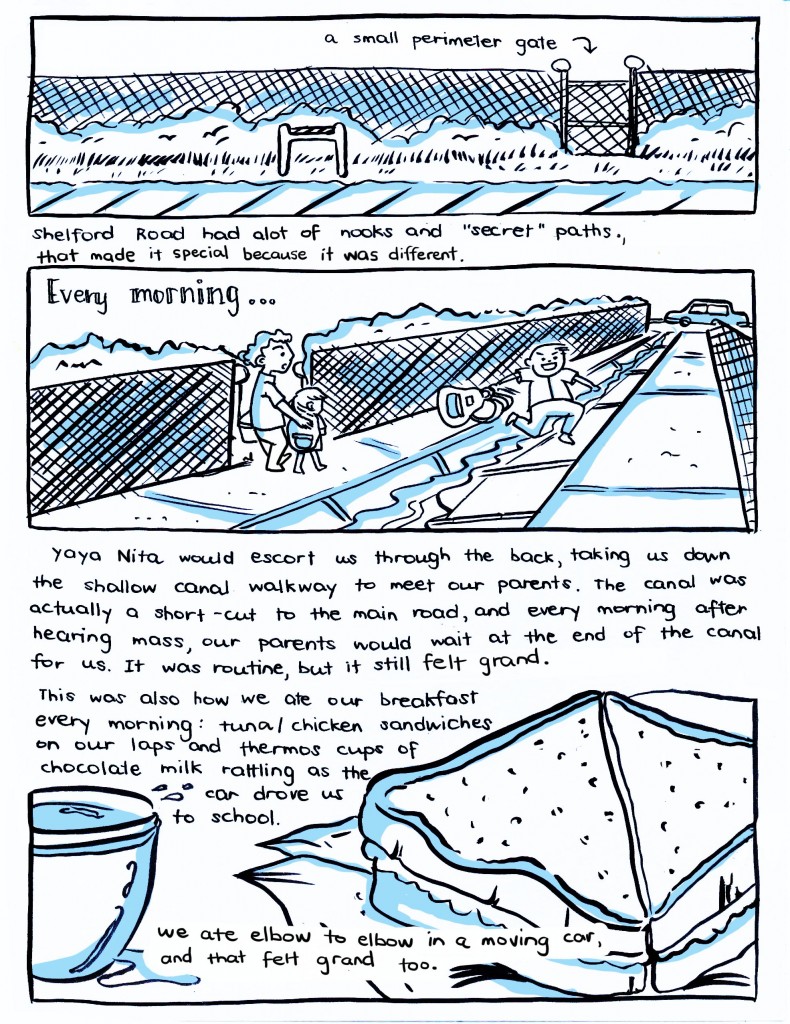 a small perimeter gate
Shelford Road had alot of nooks and "secret" paths.,
that made it special because it was different.
Every morning...
Yaya Nita would escort us through the back, taking us down
the shallow canal walkway to meet our parents. The canal was
actually a short-cut to the main road, and every morning after
hearing mass, our parents would wait at the end of the canal
for us. It was routine, but it still felt grand.
This was also how we ate our breakfast
every morning: tuna/chicken sandwiches
on our laps and thermos cups of
chocolate milk rattling as the
car drove us
to school.
we ate elbow to elbow in a moving car,
and that felt grand too.